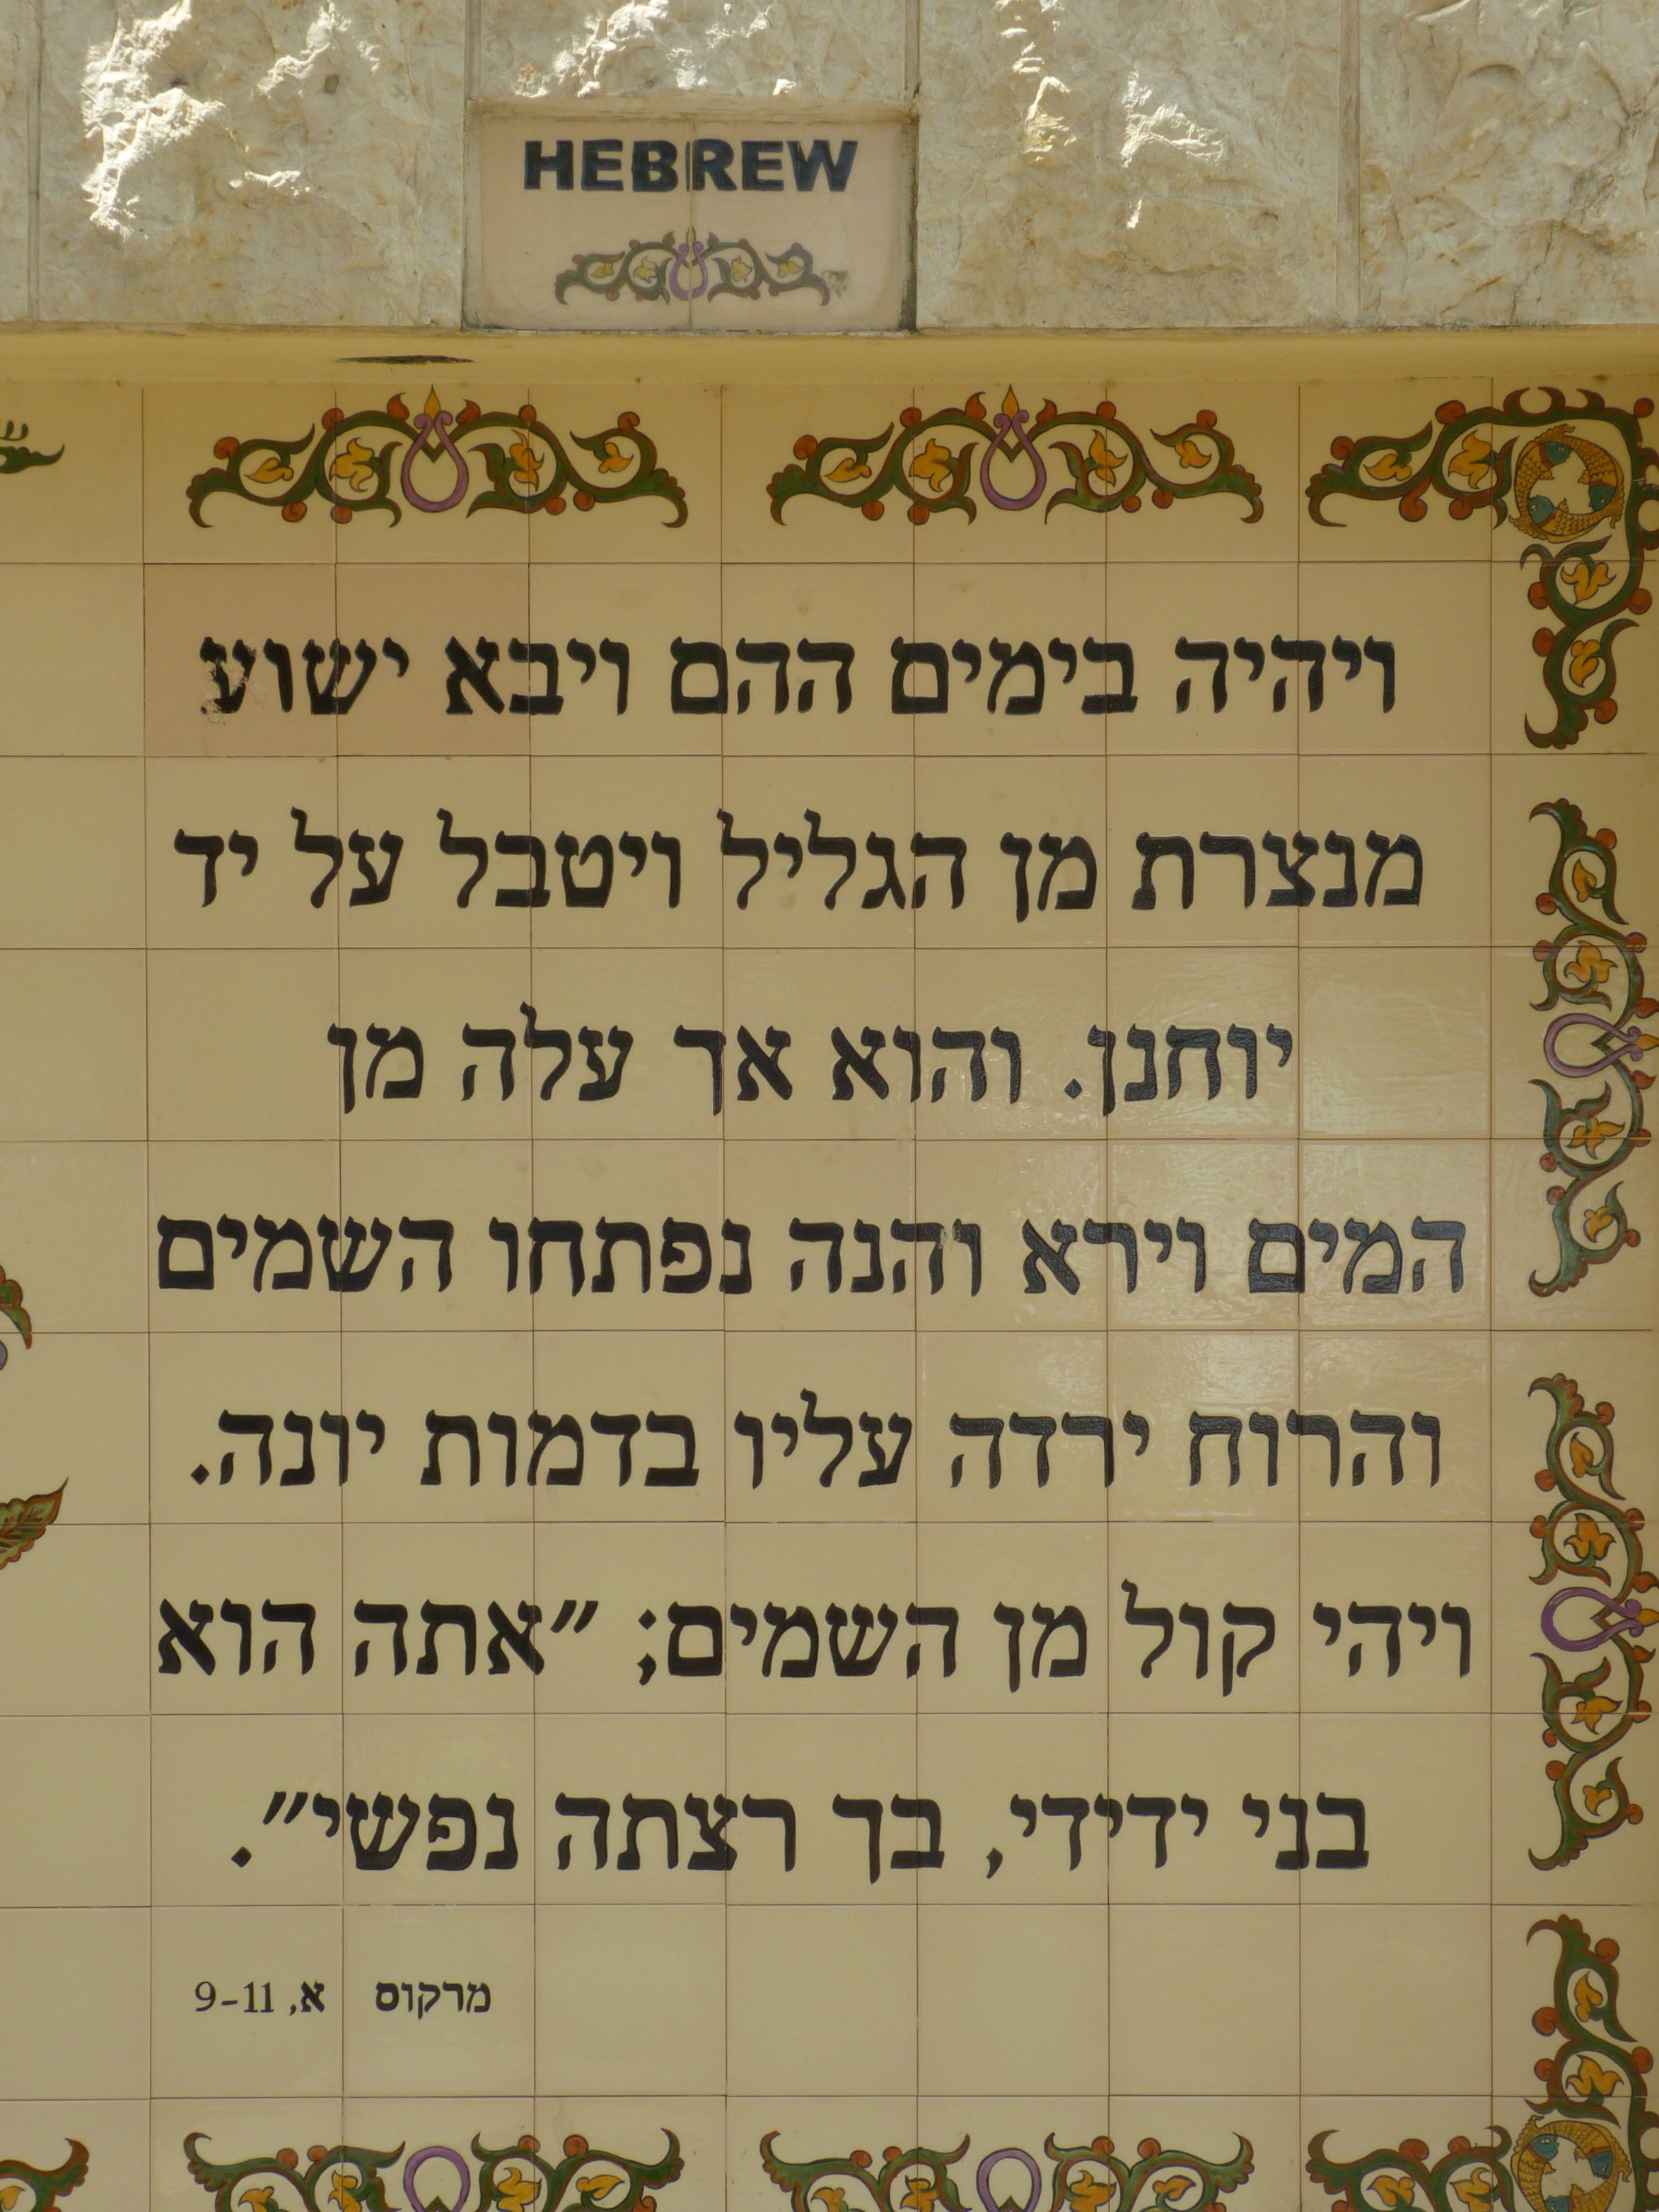 HEBREW
ויהיה בימים ההם ויבא ישוע
מנצרת מן הגליל ויטבל על יד
יוחנן. והוא אך עלה מן
המים וירא והנה נפתחו השמים
והרוח ירדה עליו בדמות יונה.
ויהי קול מן השמים; "אתה הוא
בני ידידי, בך רצתה נפשי".
מרקוס א, 9-11